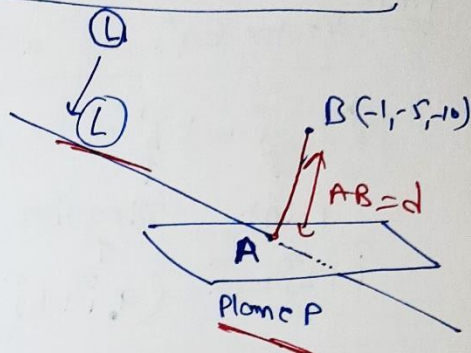 L
L
B(-1,-5,-10)
AB=d
A
Plane P